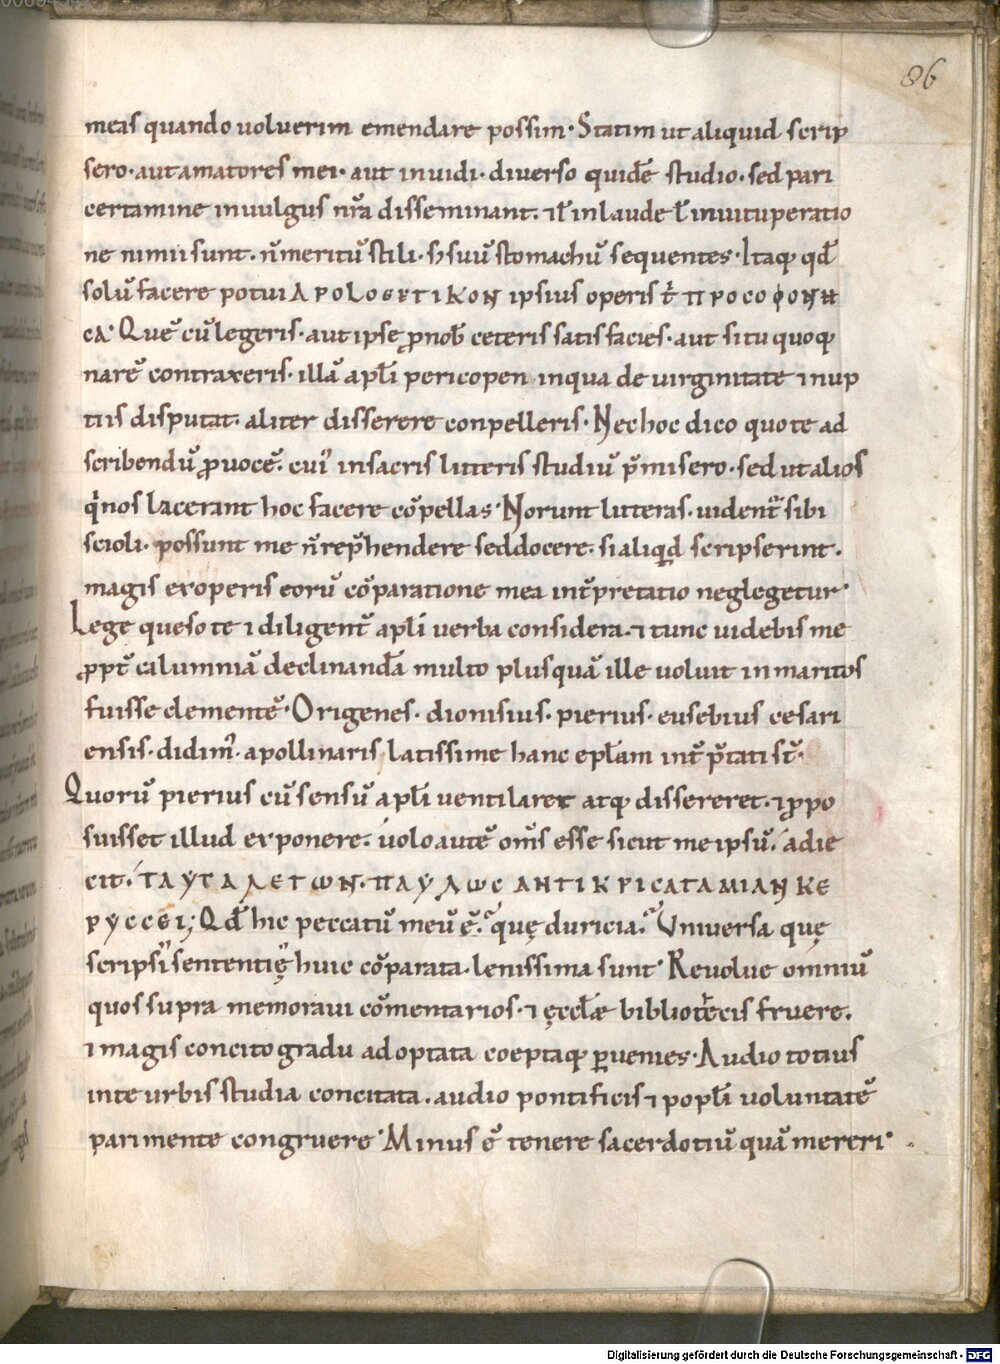 86
meas quando uoluerim emendare possim· Statim ut aliquid scrip
sero· aut amatores mei· aut inuidi· diuerso quidē studio· sed pari
certamine inuulgus nr̄a disseminant· ⁊ ł inlaude ł inuituperatio
ne nimii sunt· ñ meritū stili· s; suū stomachū sequentes· Itaq; qđ
solū facere potui ΑΡΟLΟGΕΤΙΚΟΝ ipsius operis t̄ ΠΡΟСΟΦΟΝΗ
СΑ· Quē cū legeris· aut ipse ꝓnob̄ ceteris satisfacies· aut si tu quoq;
narē contraxeris· illā apłi pericopen inqua de uirginitate ⁊ nup
tiis disputat· aliter disserere conpelleris· Nec hoc dico quo te ad
scribendū ꝓuocē· cuī insacris litteris studiū p̄misero· sed ut alios
q̇ nos lacerant hoc facere cōpellas· Norunt litteras· uident̄ sibi
scioli· possunt me ñ rep̄hendere sed docere· si aliqđ scripserint·
magis ex operis eorū cōparatione mea int̄pretatio neglegetur·
Lege queso te ⁊ diligent̄ apłi uerba considera· ⁊ tunc uidebis me
ꝓpt̄ calumniā declinandā multo plus quā ille uoluit in maritos
fuisse clementē· Origenes· dionisius· pierius· eusebius cesari
ensis· didim᾽· apollinaris latissime hanc epłam int̄ p̄tati st̄·
Quorū pierius cū sensū apłi uentilaret atq; dissereret· ⁊ ꝓpo
suisset illud exponere· uolo autē om̄s esse sicut me ipsū· adie
cit· ΤΑΥΤΑ ΛΕΓΩΝ· ΠΑΥΛΩС ΑΝΤΙΚΡΙС ΑΓΑΜΙΑΝ ΚΕ
ΡΥССΕΙ; Qđ hic peccatū meū ē· quę duricia· Uniuersa quę
scripsi sententię huic cōparata· lenissima sunt· Reuolue omniū
quos supra memoraui cōmentarios· ⁊ ęccłæ bibliotēcis fruere·
⁊ magis concito gradu ad optata coeptaq; ꝑuenies· Audio totius
inte urbis studia concitata· audio pontificis ⁊ popłi uoluntatē
pari mente congruere· Minus ē tenere sacerdotiū quā mereri·
Digitalisierung gefördert durch die Deutsche Forschungsgemeinschaft - DFG